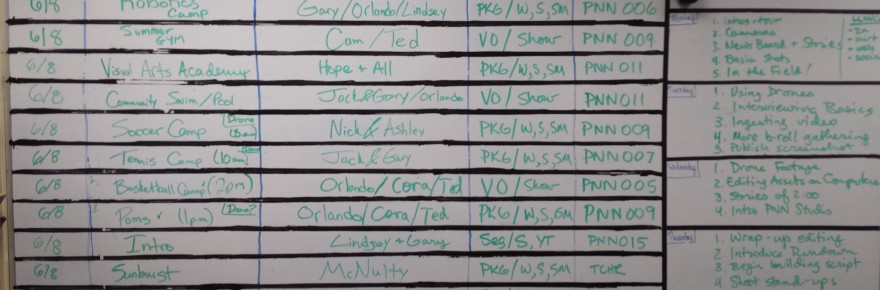 6/8 Robotics Camp Gary/Orlando/Lindsey PKG/W,S,SM PNN 006
6/8 Summer Gym Cam/Ted VO/Show PNN 009
6/8 Visual Arts Academy Hope + All PKG/W,S,SM PNN 011
6/8 Community Swim/Pool Jack&Gary/Orlando VO/Show PNN011
6/8 Soccer Camp Drone Nick & Ashley PKG/W,S,SM PNN 009
6/8 Tennis Camp (10am) Jack & Gary PKG/W,S,SM PNN 007
6/8 Basketball Camp (2pm) Orlando/Cora/Ted VO/Show PNN 005
6/8 Poms (1pm) Drone? Orlando/Cora/Ted PKG/W,S,SM PNN 009
6/8 Intro Lindsay + Gary Seg/S,YT PNN015
6/8 Sunburst McNulty PKG/W,S,SM TCHR
Monday
1. Intros + tour
2. Cameras
3. News Board + Stories
4. Basic Shots
5. In the Field!
Tuesday
1. Using Drones
2. Interviewing Basics
3. Ingesting video
4. More b-roll gathering
5. Publish screenshot
Wednesday
1. Drone Footage
2. Editing Assets on Computers
3. Stories @ 2:00
4. Intro PNN Studio
Thursday
1. Wrap-up editing
2. Introduce Rundown
3. Begin building script
4. Shoot stand-ups